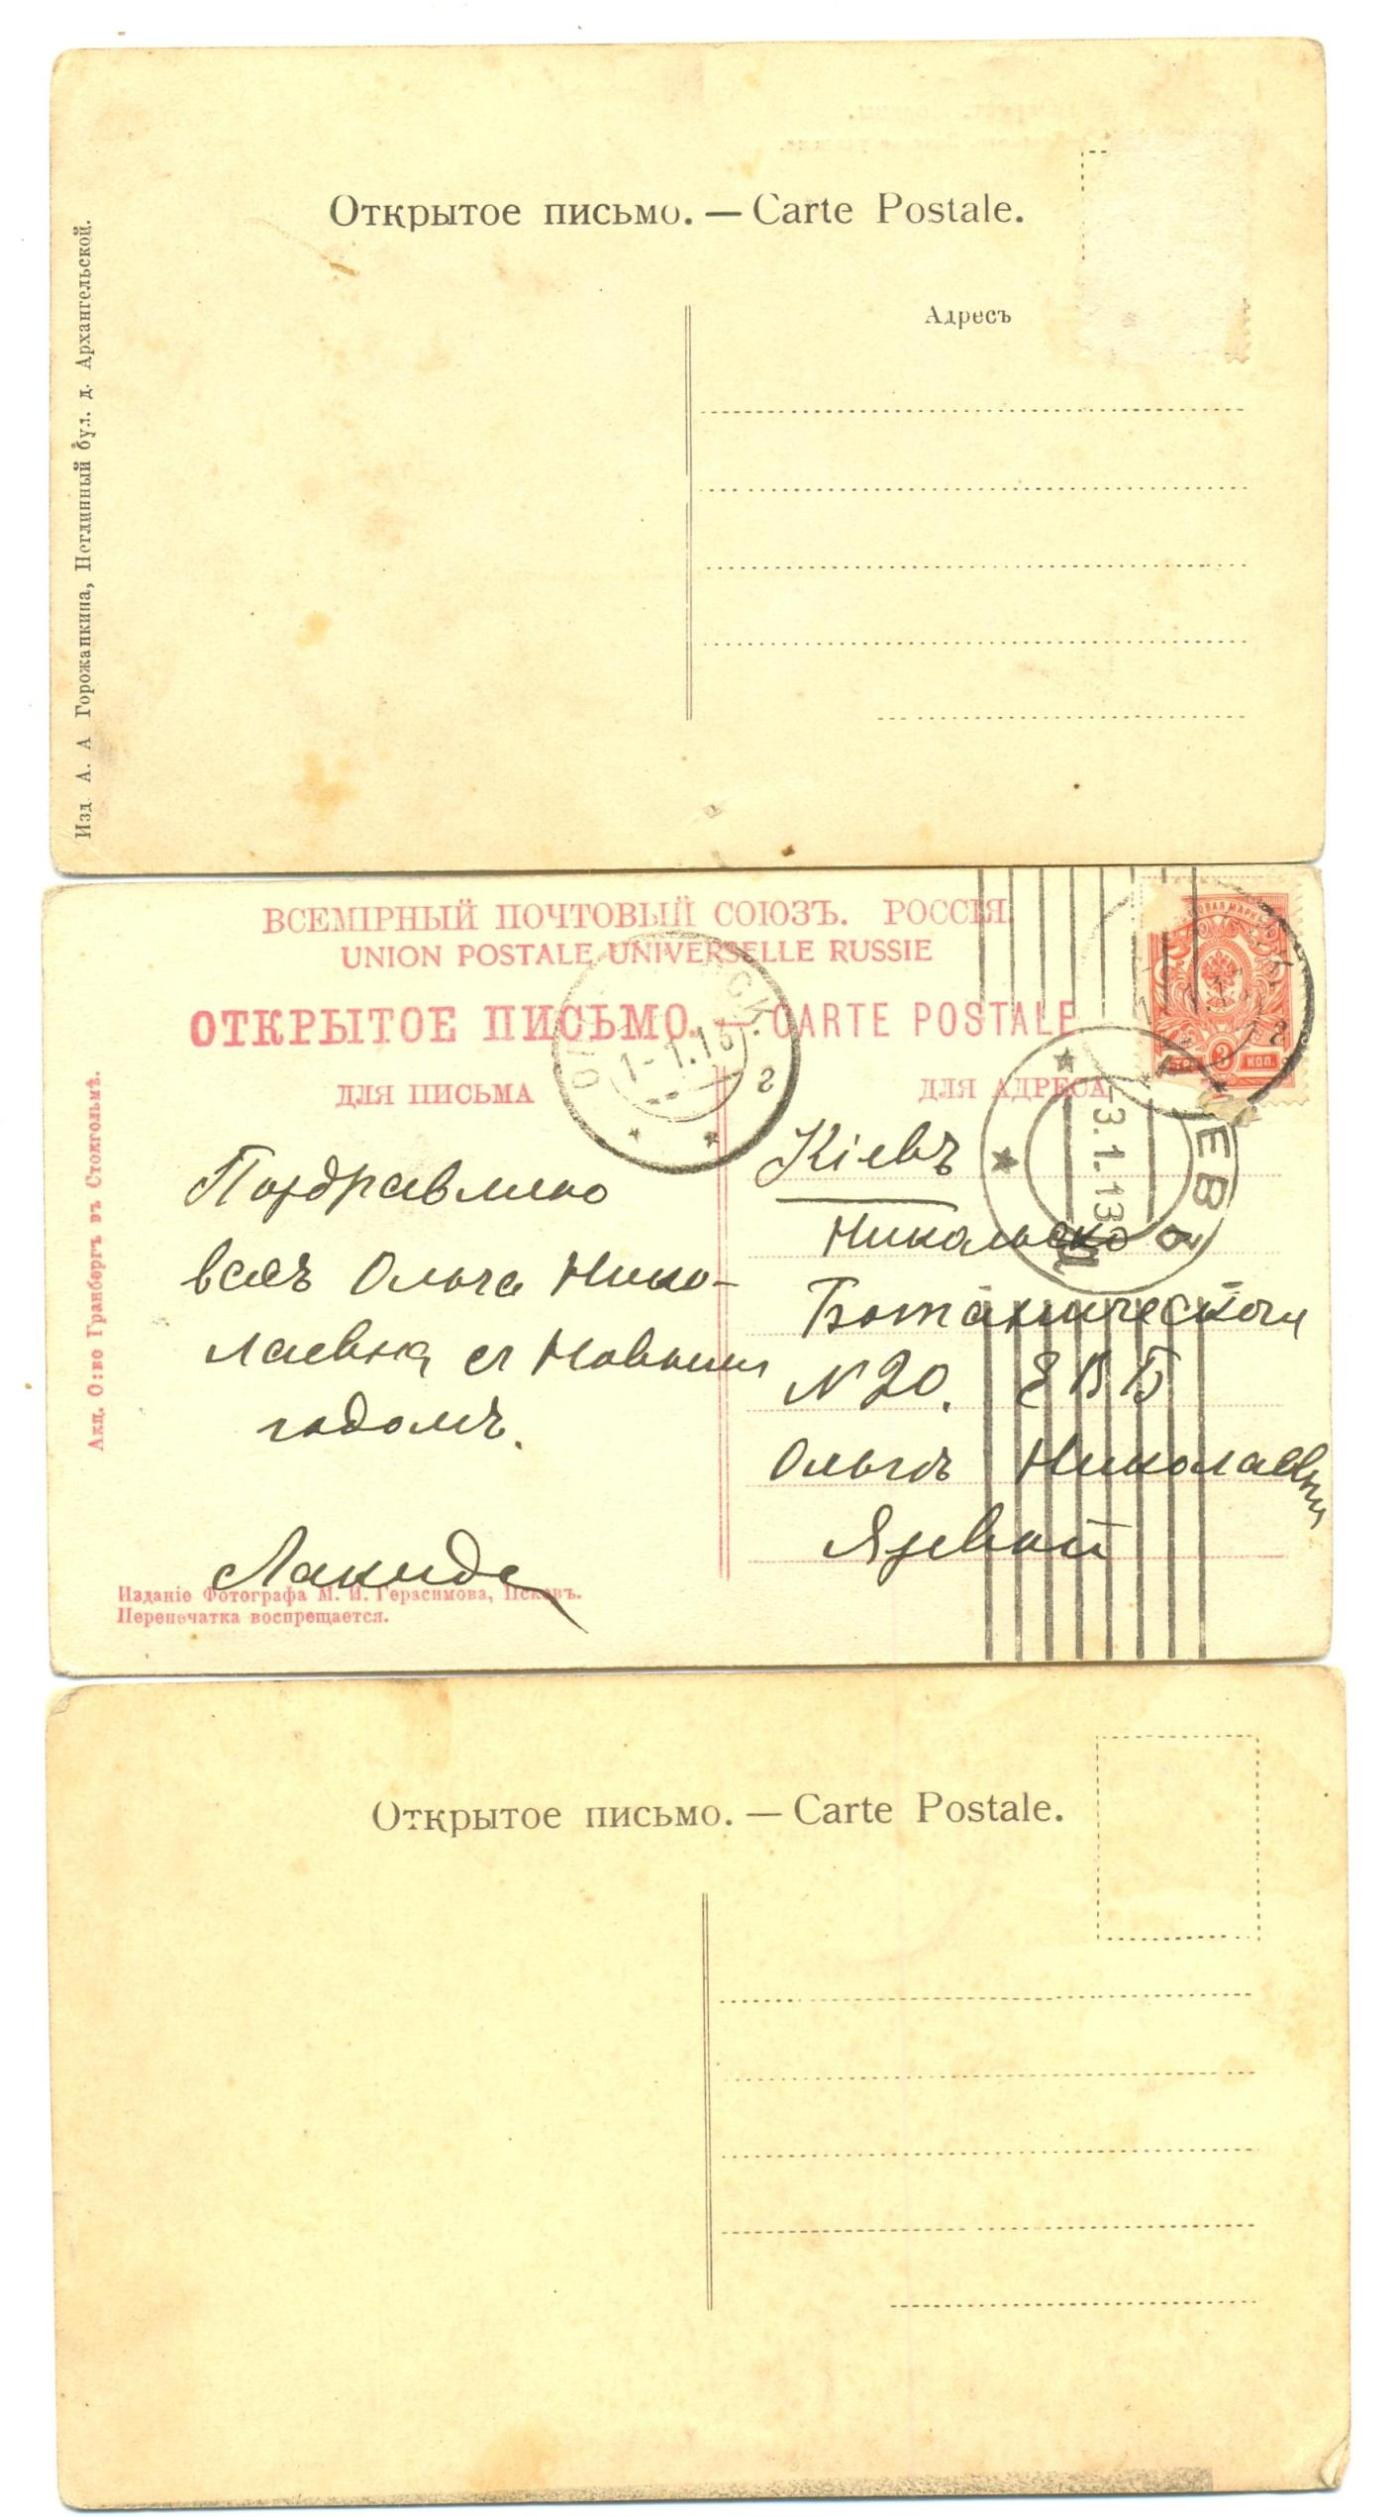 Открытое письмо. — Carte Postale.
Адресъ
Изд. А. А Горожанкина, Неглинный бул. д. Архангельской.
ВСЕМІРНЫЙ ПОЧТОВЫЙ СОЮЗЪ. РОССІЯ.
UNION POSTALE UNIVERSELLE RUSSIE
ОТКРЫТОЕ ПИСЬМО. — CARTE POSTALE
ДЛЯ ПИСЬМА
ДЛЯ АДРЕСА
1-1.13
г
3.1.13
3 КОП.
Поздравляю
васъ Ольга Нико-
лаевна съ Новымъ
годомъ.
Кіевъ
Никольско
Ботаническая
№ 20.
Ольгѣ Николаевнѣ
Язевой
Акц. О:во Гранбергъ въ Стокгольмѣ.
Изданіе Фотографа М. И. Герасимова, Псковъ.
Перепечатка воспрещается.
Открытое письмо. — Carte Postale.